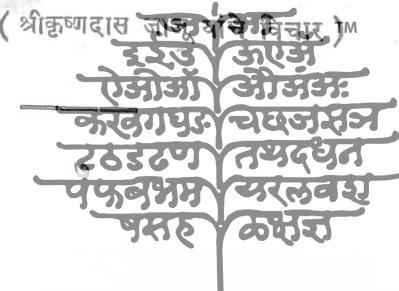 ( श्रीकृष्णदास जाजू यांचे विचार )TM
इ ई उ ऊ ए अं
ऐ ओ ऑ औ अं अः
क ख ग घ ङ च छ ज झ ञ
ट ठ ड ढ ण त थ द ध न
प फ ब भ म य र ल व श
ष स ह ळ क्ष ज्ञ